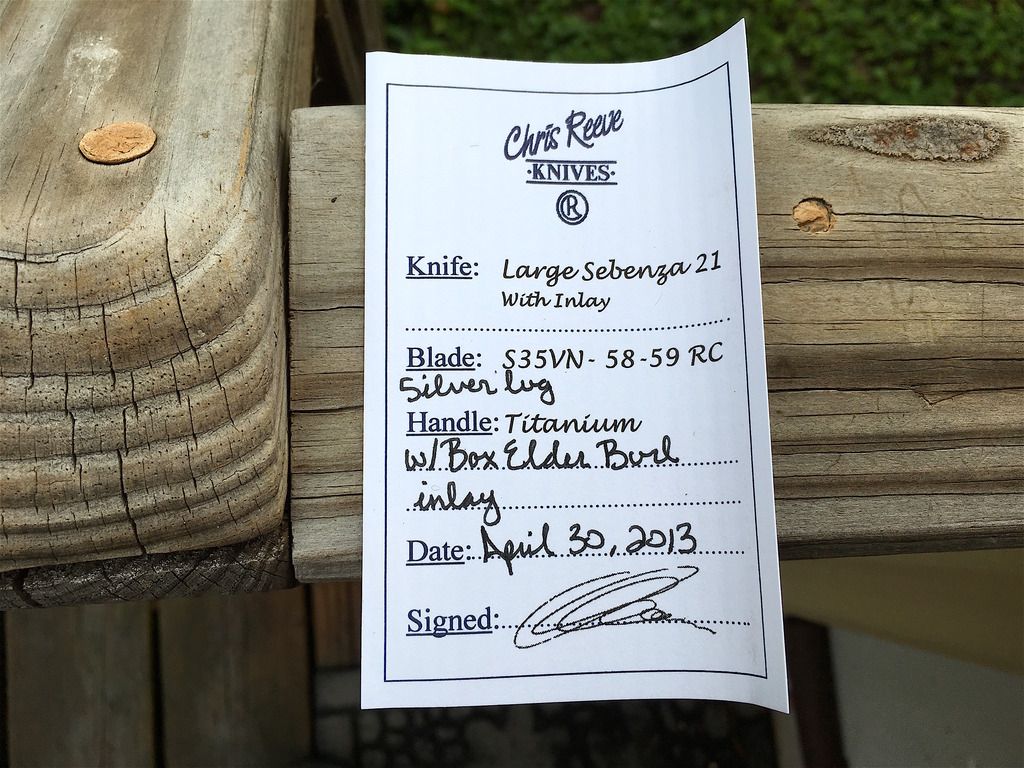 Chris Reeve
·KNIVES·
R
Knife: Large Sebenza 21
With Inlay
Blade: S35VN - 58-59 RC
Silver lug
Handle: Titanium
w/Box Elder Burl
inlay
Date: April 30, 2013
Signed: